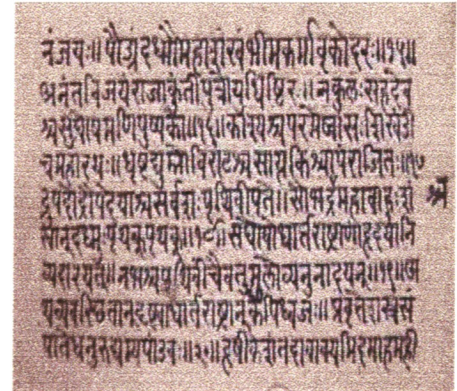 नंजयः॥ पौंड्रंदध्मौमहाशंखंभीमकर्मावृकोदरः॥१५॥
अनंतविजयंराजाकुंतीपुत्रोयुधिष्ठिरः॥ नकुलःसहदेव
श्चसुघोषमणिपुष्पकौ॥१६॥काश्यश्चपरमेष्वासःशिखंडी
चमहारथः॥ धृष्टद्युम्नोविराटश्चसात्यकिश्चापराजितः॥१७
द्रुपदोद्रौपदेयाश्चसर्वशःपृथिवीपते॥ सौभद्रश्चमहाबाहुःशं
खान्दध्मुःपृथक्पृथक्॥१८॥सघोषोधार्तराष्ट्राणांहृदयानि
व्यदारयत्॥नभश्चपृथिवींचैवतुमुलोव्यनुनादयन्॥१९॥अ
थव्यवस्थितान्दृष्ट्वाधार्तराष्ट्रान्कपिध्वजः॥ प्रवृत्तेशस्त्रसं
पातेधनुरुद्यम्यपांडवः॥२०॥हृषीकेशंतदावाक्यमिदमाहमही